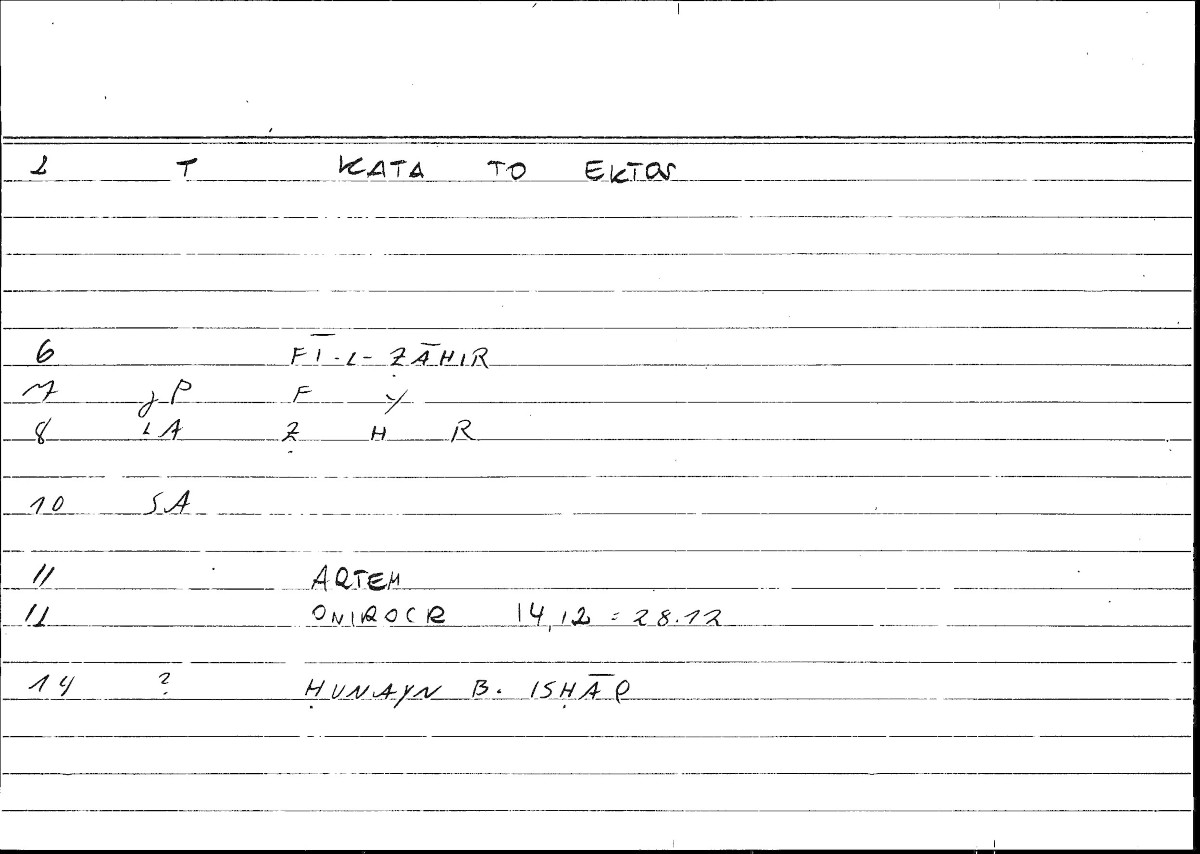 1 T KATA TO EKTOS
6 FĪ-L-ẒĀHIR
7 JP F Y
8 LA Ẓ H R
10 SA
11 ARTEM
12 ONIROCR 14,12 = 28.12
14 ? ḤUNAYN B. ISḤĀQ